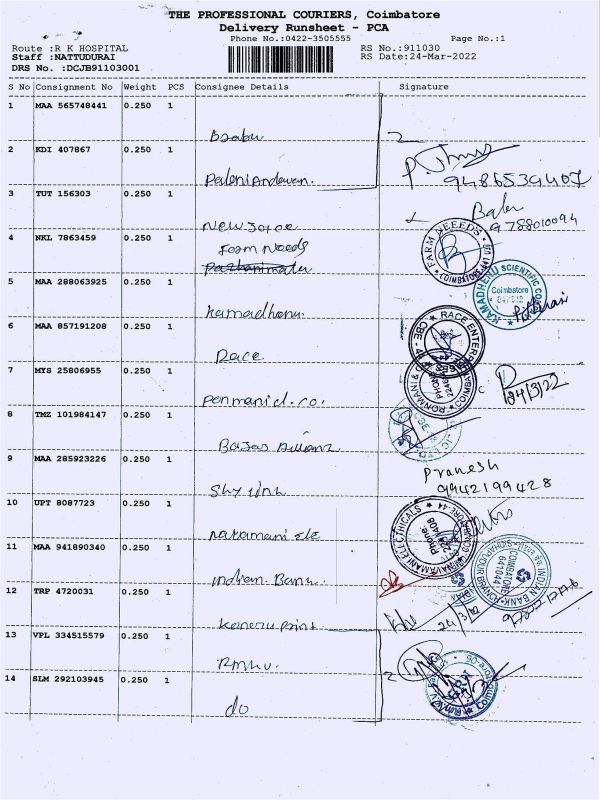 THE PROFESSIONAL COURIERS, Coimbatore
Delivery Runsheet - PCA
Phone No.:0422-3505555 Page No.:1
Route :R K HOSPITAL RS No.:911030
Staff :NATTUDURAI RS Date:24-Mar-2022
DRS No. :DCJB91103001
S No Consignment No Weight PCS Consignee Details Signature
1 MAA 565748441 0.250 1
Babu 2
2 KDI 407867 0.250 1
PalaniAndavan. 9486539407
3 TUT 156303 0.250 1
New Joice Babu 9788010094
4 NKL 7863459 0.250 1
Farm Needs FARM NEEEDS COIMBATORE
5 MAA 288063925 0.250 1
Kamadhenu. KAMADHENU SCIENTIFIC CO Coimbatore
6 MAA 857191208 0.250 1
Race RACE ENTER CBE - 4
7 MYS 25806955 0.250 1
Ponmani d. co. PONMANI & COIMBA 24/3/22
8 TMZ 101984147 0.250 1
Bajaj Allianz
9 MAA 285923226 0.250 1
Sky link Pranesh 9942199428
10 UPT 8087723 0.250 1
Navamani Ele NAVAMANI ELECTRICALS Phone:
11 MAA 941890340 0.250 1
Indian Bank. INDIAN BANK COIMBATORE 641044
12 TRP 4720031 0.250 1
Print. 24/3/22
13 VPL 334515579 0.250 1
RMKV. 2
14 SLM 292103945 0.250 1
do